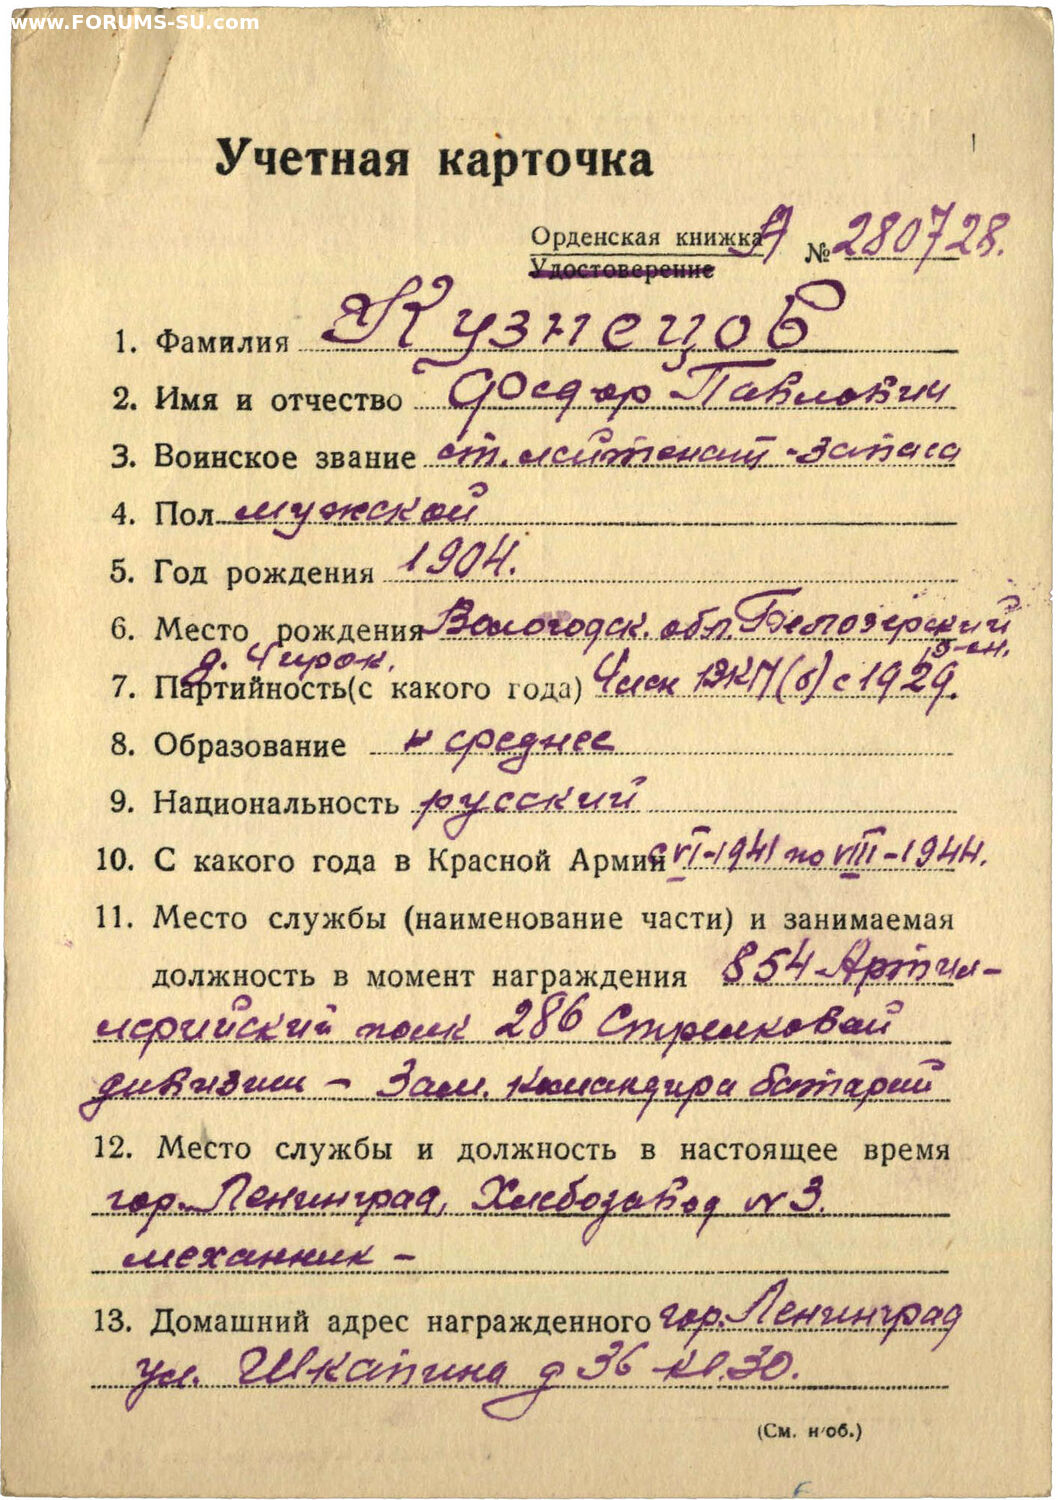 www.FORUMS-SU.com
Учетная карточка
Орденская книжка А № 280728.
Удостоверение
1. Фамилия Кузнецов
2. Имя и отчество Федор Павлович
3. Воинское звание ст. лейтенант - запаса
4. Пол мужской
5. Год рождения 1904.
6. Место рождения Вологодск. обл. Белозерский
р-он.
д. Чирок.
7. Партийность (с какого года) Член ВКП(б) с 1929.
8. Образование н среднее
9. Национальность русский
10. С какого года в Красной Армии с VI-1941 по VIII-1944.
11. Место службы (наименование части) и занимаемая
должность в момент награждения 854 Артил-
лерийский полк 286 Стрелковой
дивизии - Зам. командира батареи
12. Место службы и должность в настоящее время
гор. Ленинград, Хлебозавод № 3.
механник -
13. Домашний адрес награжденного гор. Ленинград
ул. Шкапина д 36 кв. 30.
(См. н/об.)